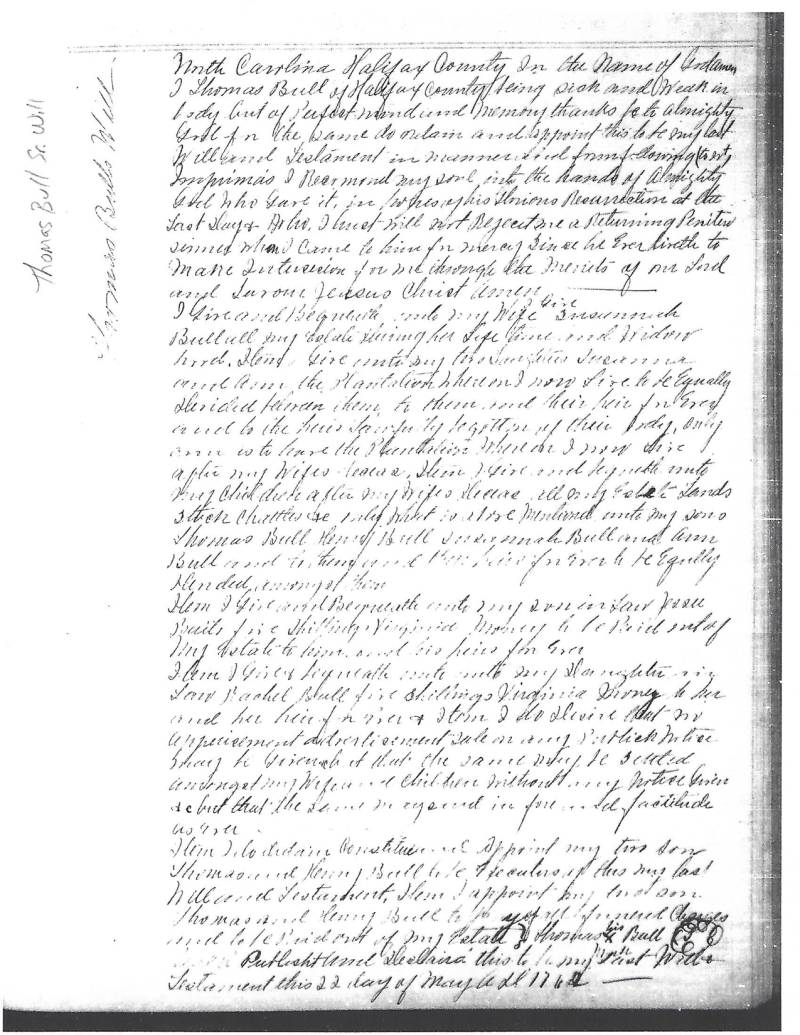 Thomas Bull Sr. Will
Thomas Bulls Will
North Carolina Halifax County In the Name of God amen
I Thomas Bull of Halifax County being sick and Weak in
body but of Perfect mind and Memory thanks be to almighty
God for the same do ordain and appoint this to be my last
Will and Testament in manner and form following to wit
Imprimas I Recomond my soul into the hands of Almighty
God Who Gave it, in hopes of his Glorious Resurrection at the
Last Day & Who, I trust will not Reject me a Returning Peniten
sinner when I came to him for mercy Since he Ever liveth to
Make Intersesion for me through the Merits of our Lord
and Saviour Jesus Christ Amen
I Give and Bequeath unto my Wife Susannah
Bull all my Estate During her Life time and Widow
hood. Item I Give unto my two Daughters Susanna
and Ann the Plantation Whereon I now Live to be Equally
Devided between them, to them and their heirs for Ever
and to the heirs Lawfully begotten of their body, only
ann is to have the Plantation Whereon I now Live
after my Wifes deceas, Item I Give and bequeath unto
my Children after my Wifes deceas all my Estate Lands
Stock Chattles &c only What is above Mentiond unto my sons
Thomas Bull Henry Bull Susannah Bull and Ann
Bull and to them and their heirs for Ever to be Equlley
Devided amongst them
Item I Give and Bequeath unto my son in Law Jesse
five Shillings Virginia Money to be Paid out of
my Estate to him and his heirs for Ever
Item I Give & bequeath unto unto my Daughter in
Law Rachel Bull five Shillings Virginia Money to her
and her heirs for Ever & Item I do Desire that no
appreisement advertisement Sale or any Publick Notice
may be Given but that the same may be Setled
amongst my Wife and Children without any Notice Given
&c but that the same may and in force and
as Ever
Item I do ordain Constitue and Appoint my two son
Thomas and Henry Bull to be Executors of this my last
Will and Testament, Item I appoint my two son
Thomas and Henry Bull to Pay all funeral Charges
and to be Paid out of my Estate Thomas his X Bull
Publisht and Declaird this to be my Last Will &
Testament this 22 day of May A D 176